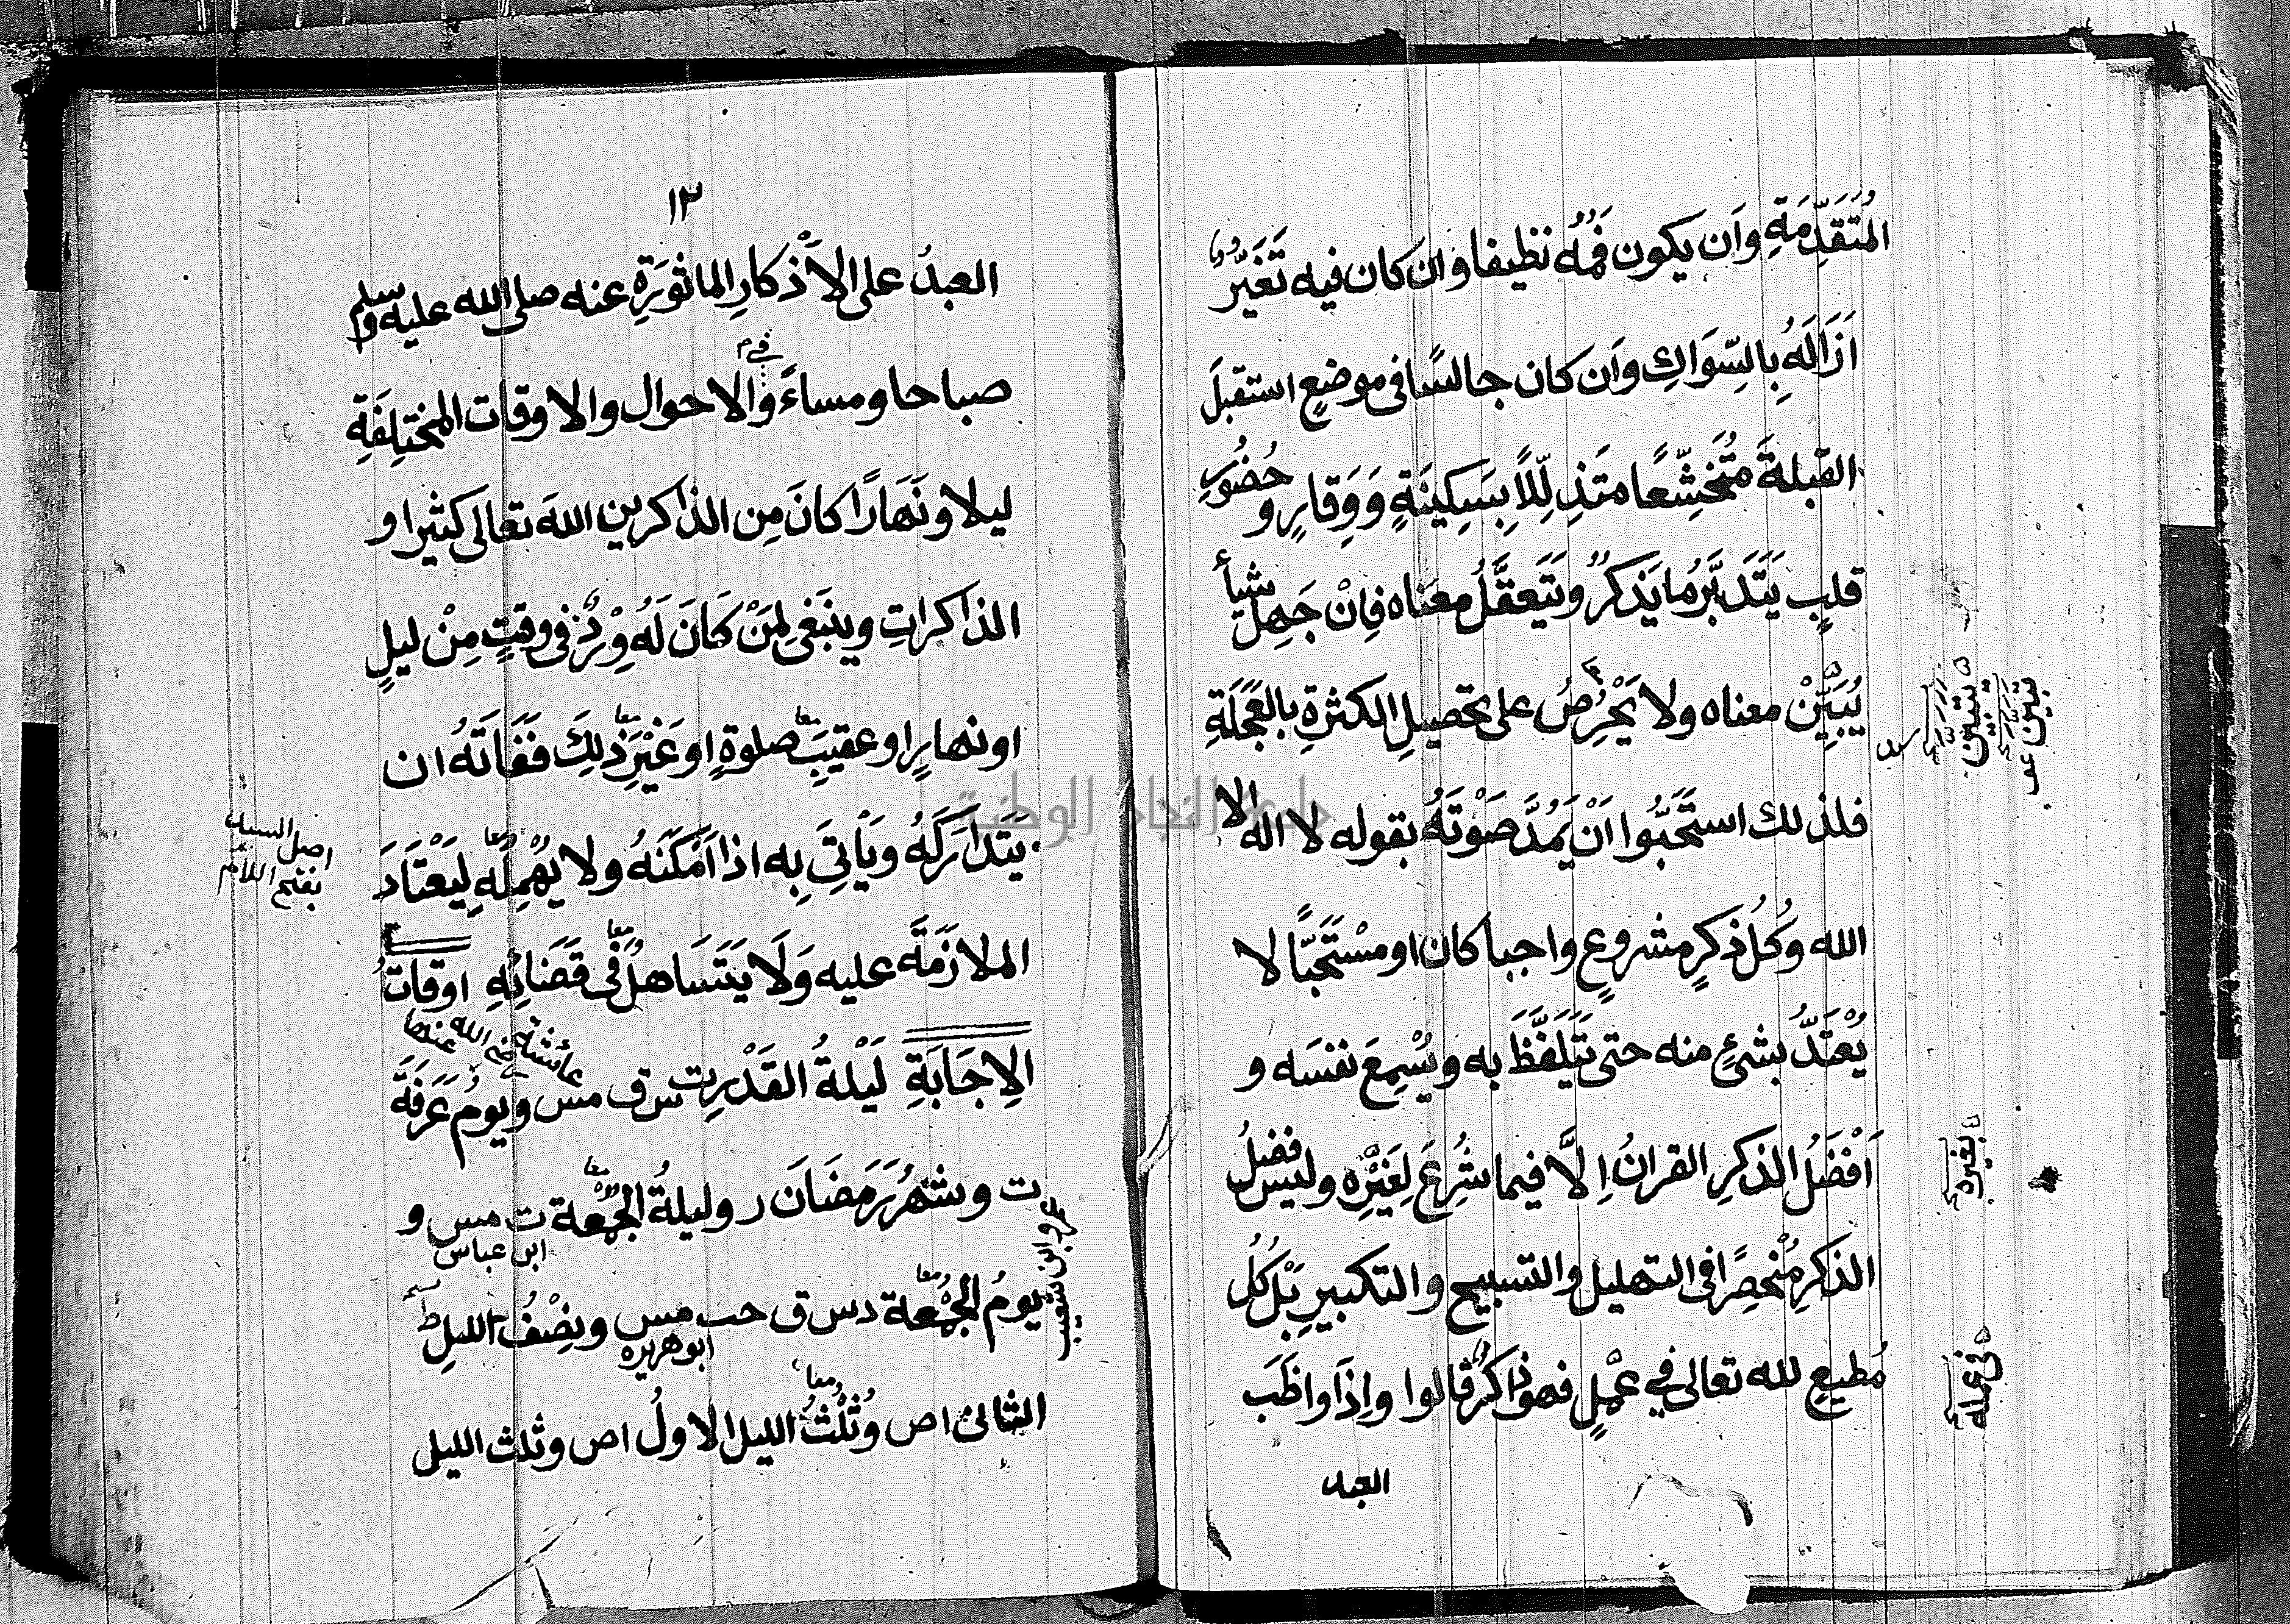 المُتَقَدِّمَةِ وَاَن يكون فَمُهُ نظيفا وان كان فيه تَغَيُّرٌ
اَزَالَهُ بِالسِّوَاكِ وَاَن كان جالسًا فى موضعٍ استقبلَ
القبلةَ مُتَخَشِّعًا مُتَذلِّلًا بِسَكِينَةٍ وَوَقارٍ وحُضُورِ
قلبٍ يَتَدَبَّرُ ما يَذكُرُ ويَتَعَقَّلُ معنَاه فاِنْ جَهِلَ شيأ
يُبَيِّنْ معناه ولا يَحْرِصُ على تحصيلِ الكثرةِ بالعَجَلَةِ
فلذلك استَحَبُّوا اَنْ يَمُدَّ صَوْتَهُ بقوله لا اله الا
الله وكُلُّ ذكرٍ مشروعٍ واجبا كان او مُسْتَحَبًّا لا
يُعْتَدُّ بشئٍ منه حتى يَتَلَفَّظَ به ويُسْمِعَ نفسَه و
اَفْضَلُ الذكرِ القرانُ اِلَّا فيما شُرِعَ لِغَيْرِه وليس فضلُ
الذكرِ مُنْحصِرًا فى التهليل والتسبيح والتكبيرِ بَلْ كُلُّ
مُطيعٍ لله تعالى في عَمَلٍ فهو ذاكرٌ قالوا واِذَا واظَبَ
العبد
تبين
تبين
بغيره
فى عمله
١٢
العبدُ على الاَذْكارِ الماثُورَةِ عنه صلى الله عليه وسلم
صباحا ومساءً والاحوال والاوقات المختلِفَةِ
في
ليلا ونَهَارًا كانَ مِن الذاكرين اللهَ تعالى كثيرا و
الذاكراتِ وينبَغى لِمَنْ كَانَ لَهُ وِرْدٌ فى وقتٍ مِنْ ليلٍ
او نهارٍ او عقيبَ صلوةٍ او غَيْرِ ذلِكَ فَفَاتَهُ ان
معا
معا
يَتَدَارَكَهُ ويَأتِىَ بِه اذا اَمْكَنَهُ ولا يُهْمِلَهِ لِيَعْتَادَ
معا
اصل السيد
بفتح اللام
الملازَمَةَ عليه وَلَا يَتَسَاهلُ فى قَضَائِهِ اوقاتُ
معا
الاِجَابَةِ لَيْلَةُ القَدْرِ ت س ق مس ويومُ عَرَفَةَ
عائشة رضى الله عنها
ت وشهرُ رَمَضَانَ ر وليلةُ الجُمُعة ت مس و
معا
ابن عباس
عمرو ابن شعيب
يومُ الجُمْعة دس ق حب مس ونِصْفُ الليلِ ط
معا
ابو هريره
الثانى اص وثُلُثُ الليل الاولُ اص وثلث الليل
معا
جامعة النجاح الوطنية